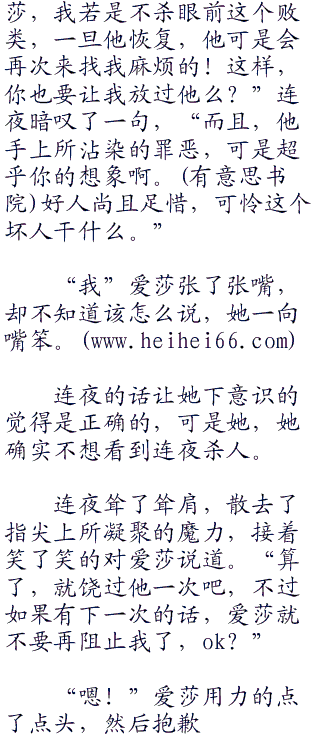 莎，我若是不杀眼前这个败
类，一旦他恢复，他可是会
再次来找我麻烦的！这样，
你也要让我放过他么？”连
夜暗叹了一句，“而且，他
手上所沾染的罪恶，可是超
乎你的想象啊。(有意思书
院)好人尚且足惜，可怜这个
坏人干什么。”
“我”爱莎张了张嘴，
却不知道该怎么说，她一向
嘴笨。(www.heihei66.com)
连夜的话让她下意识的
觉得是正确的，可是她，她
确实不想看到连夜杀人。
连夜耸了耸肩，散去了
指尖上所凝聚的魔力，接着
笑了笑的对爱莎说道。“算
了，就饶过他一次吧，不过
如果有下一次的话，爱莎就
不要再阻止我了，ok？”
“嗯！”爱莎用力的点
了点头，然后抱歉